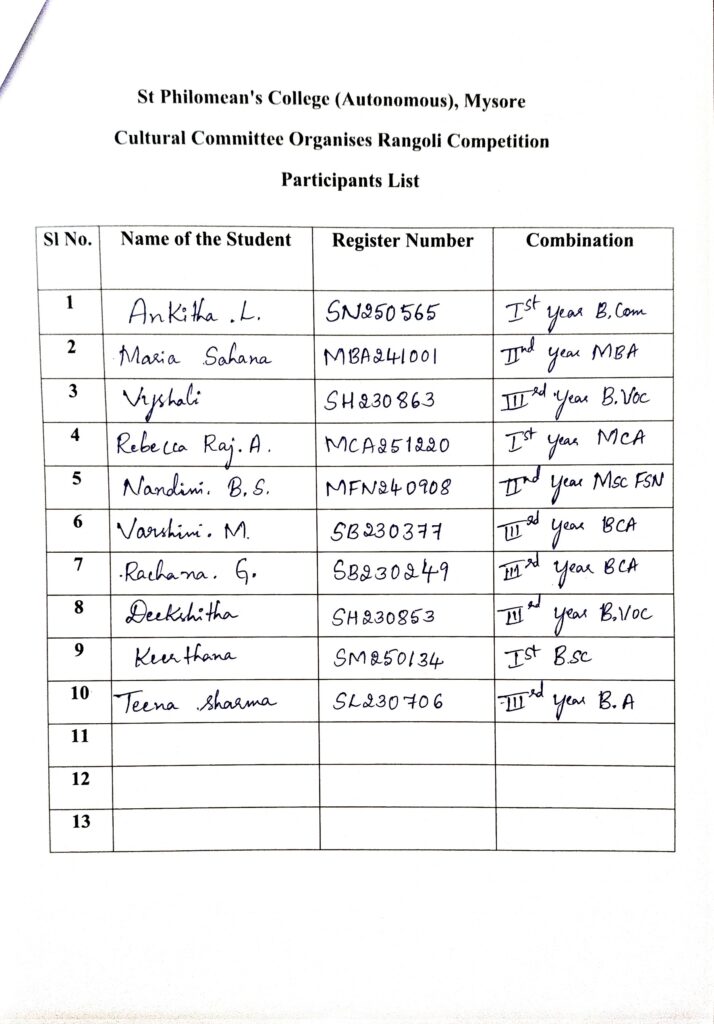 St Philomean's College (Autonomous), Mysore
Cultural Committee Organises Rangoli Competition
Participants List
Sl No. Name of the Student Register Number Combination
1 Ankitha .L. SN250565 Ist year B.Com
2 Maria Sahana MBA241001 IInd year MBA
3 Vyshali SH230863 IIIrd Year B.Voc
4 Rebecca Raj. A. MCA251220 Ist year MCA
5 Nandini. B.S. MFN240908 IInd year Msc FSN
6 Varshini. M. SB230377 IIIrd year BCA
7 Rachana. G. SB230249 IIIrd year BCA
8 Deekshitha SH230853 IIIrd year B.Voc
9 Keerthana SM250134 Ist B.sc
10 Teena sharma SL230706 IIIrd year B.A
11
12
13